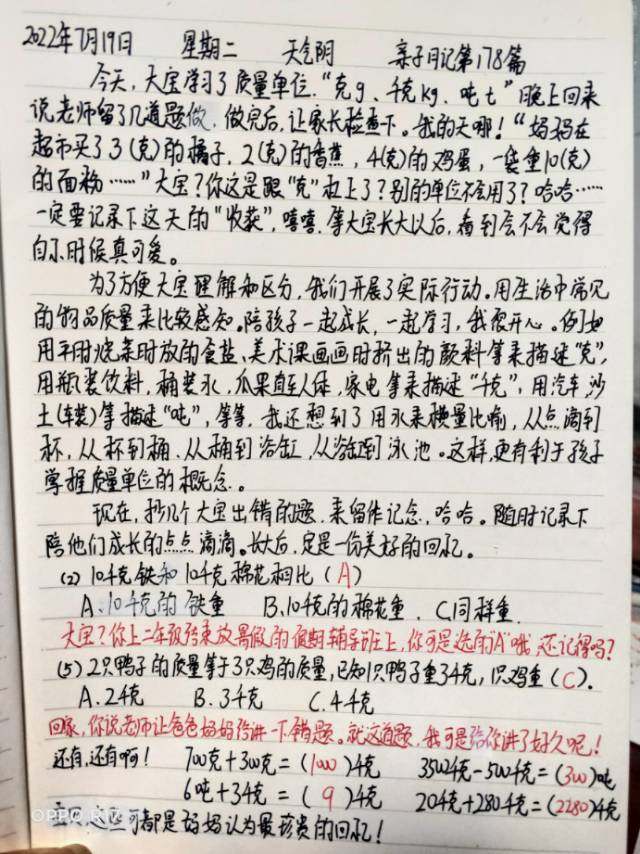 2022年7月19日 星期二 天气阴 亲子日记第178篇
今天,大宝学习了质量单位,“克g、千克kg、吨t”晚上回来
说老师留了几道题做,做完后,让家长检查下。我的天哪!“妈妈在
超市买了3(克)的橘子,2(克)的香蕉,4(克)的鸡蛋,一袋重10(克)
的面粉……”大宝?你这是跟“克”杠上了?别的单位不会用了?哈哈……
一定要记录下这天的“收获”,嘻嘻,等大宝长大以后,看到会不会觉得
自己小时候真可爱。
为了方便大宝理解和区分,我们开展了实际行动。用生活中常见
的物品质量来比较感知。陪孩子一起成长,一起学习,我很开心。例如
用平时烧菜时放的食盐、美术课画画时挤出的颜料等来描述“克”,
用瓶装饮料,桶装水,瓜果直至人体,家电等来描述“千克”,用汽车,沙
土(车装)等描述“吨”,等等,我还想到了用水来模量比喻,从点滴到
杯,从杯到桶,从桶到浴缸,从浴缸到泳池。这样,更有利于孩子
掌握质量单位的概念。
现在,抄几个大宝出错的题,来留作记念,哈哈。随时记录下
陪他们成长的点点滴滴。长大后,定是一份美好的回忆。
(2)10千克铁和10千克棉花相比(A)
A.10千克的铁重 B.10千克的棉花重. C.同样重.
大宝?你上二年级结束放暑假的假期辅导班上,你可是选的“A”哦,还记得吗?
(5)2只鸭子的质量等于3只鸡的质量,已知1只鸭子重3千克,1只鸡重(C).
A.2千克 B.3千克 C.4千克
回家,你说老师让爸爸妈妈给讲一下错题。就这道题,我可是给你讲了好久呢!
还有,还有啊! 700克+300克=(1000)千克 3500千克-500千克=(300)吨
6吨+3千克=(9)千克 20千克+280千克=(2280)千克
这可都是妈妈认为最珍贵的回忆!
OPPO R17